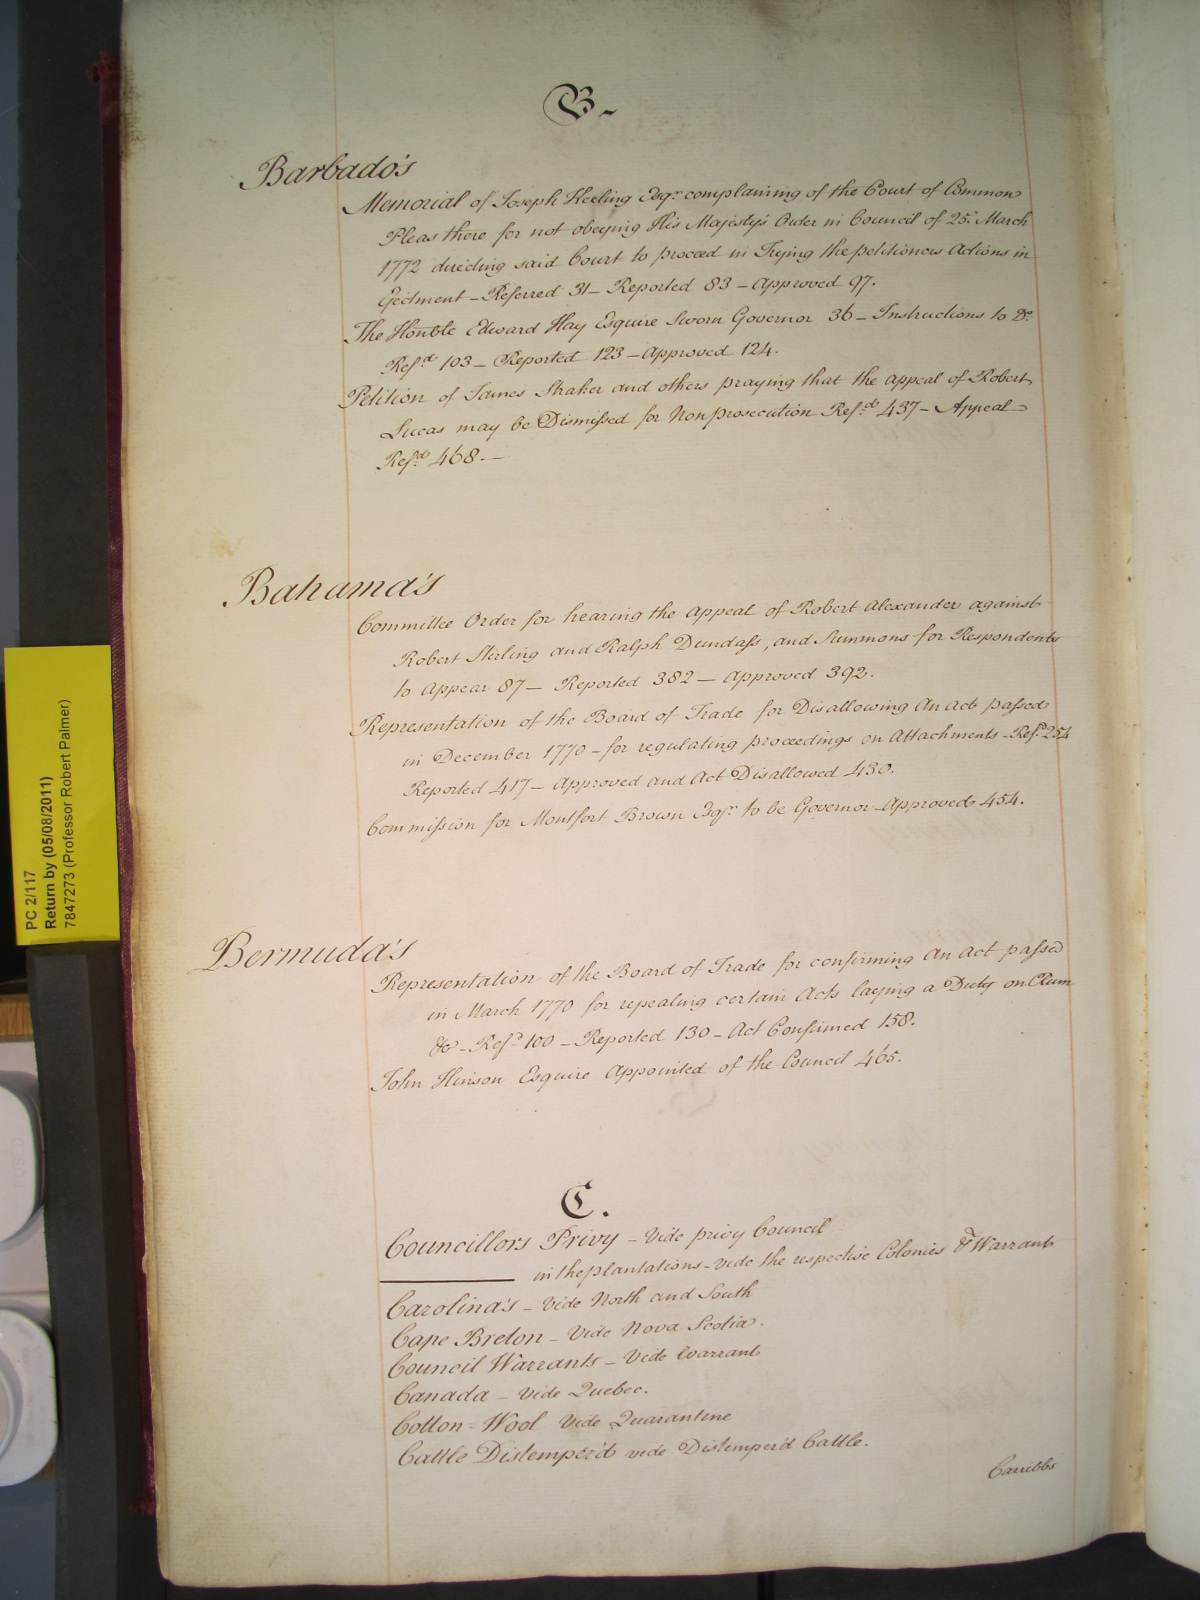 B-
Barbado's
Memorial of Joseph Keeling Esqr. complaining of the Court of Common
Pleas there for not obeying His Majesty's Order in Council of 25. March
1772 directing said Court to proceed in Trying the petitioners Actions in
Ejectment - Referred 31 - Reported 83 - Approved 97.
The Honble Edward Hay Esquire Sworn Governor 36 - Instructions to Do.
Refd. 103 - Reported 123 - Approved 124.
Petition of James Shaker and others praying that the appeal of Robert
Lucas may be Dismissed for Nonprosecution Refd. 437 - Appeal
Refd. 468. -
Bahama's
Committee Order for hearing the Appeal of Robert Alexander against
Robert Sterling and Ralph Dundass, and Summons for Respondents
to Appear 87 - Reported 382 - Approved 392.
Representation of the Board of Trade for Disallowing An Act passed
in December 1770 - for regulating proceedings on Attachments - Refd. 254
Reported 417 - Approved and Act Disallowed 430.
Commission for Montfort Brown Esqr. to be Governor - Approved 454.
Bermuda's
Representation of the Board of Trade for confirming An Act passed
in March 1770 for repealing certain Acts laying a Duty on Rum
&c - Refd. 100 - Reported 130 - Act Confirmed 158.
John Hinson Esquire Appointed of the Council 465.
C.
Councillors Privy - Vide privy Council
in the plantations - vide the respective Colonies & Warrant
Carolina's - Vide North and South
Cape Breton - Vide Nova Scotia.
Council Warrants - Vide Warrant
Canada - Vide Quebec.
Cotton = Wool Vide Quarantine
Cattle Distemper'd vide Distemper'd Cattle.
Carribbs
PC 2/117
Return by (05/08/2011)
7847273 (Professor Robert Palmer)